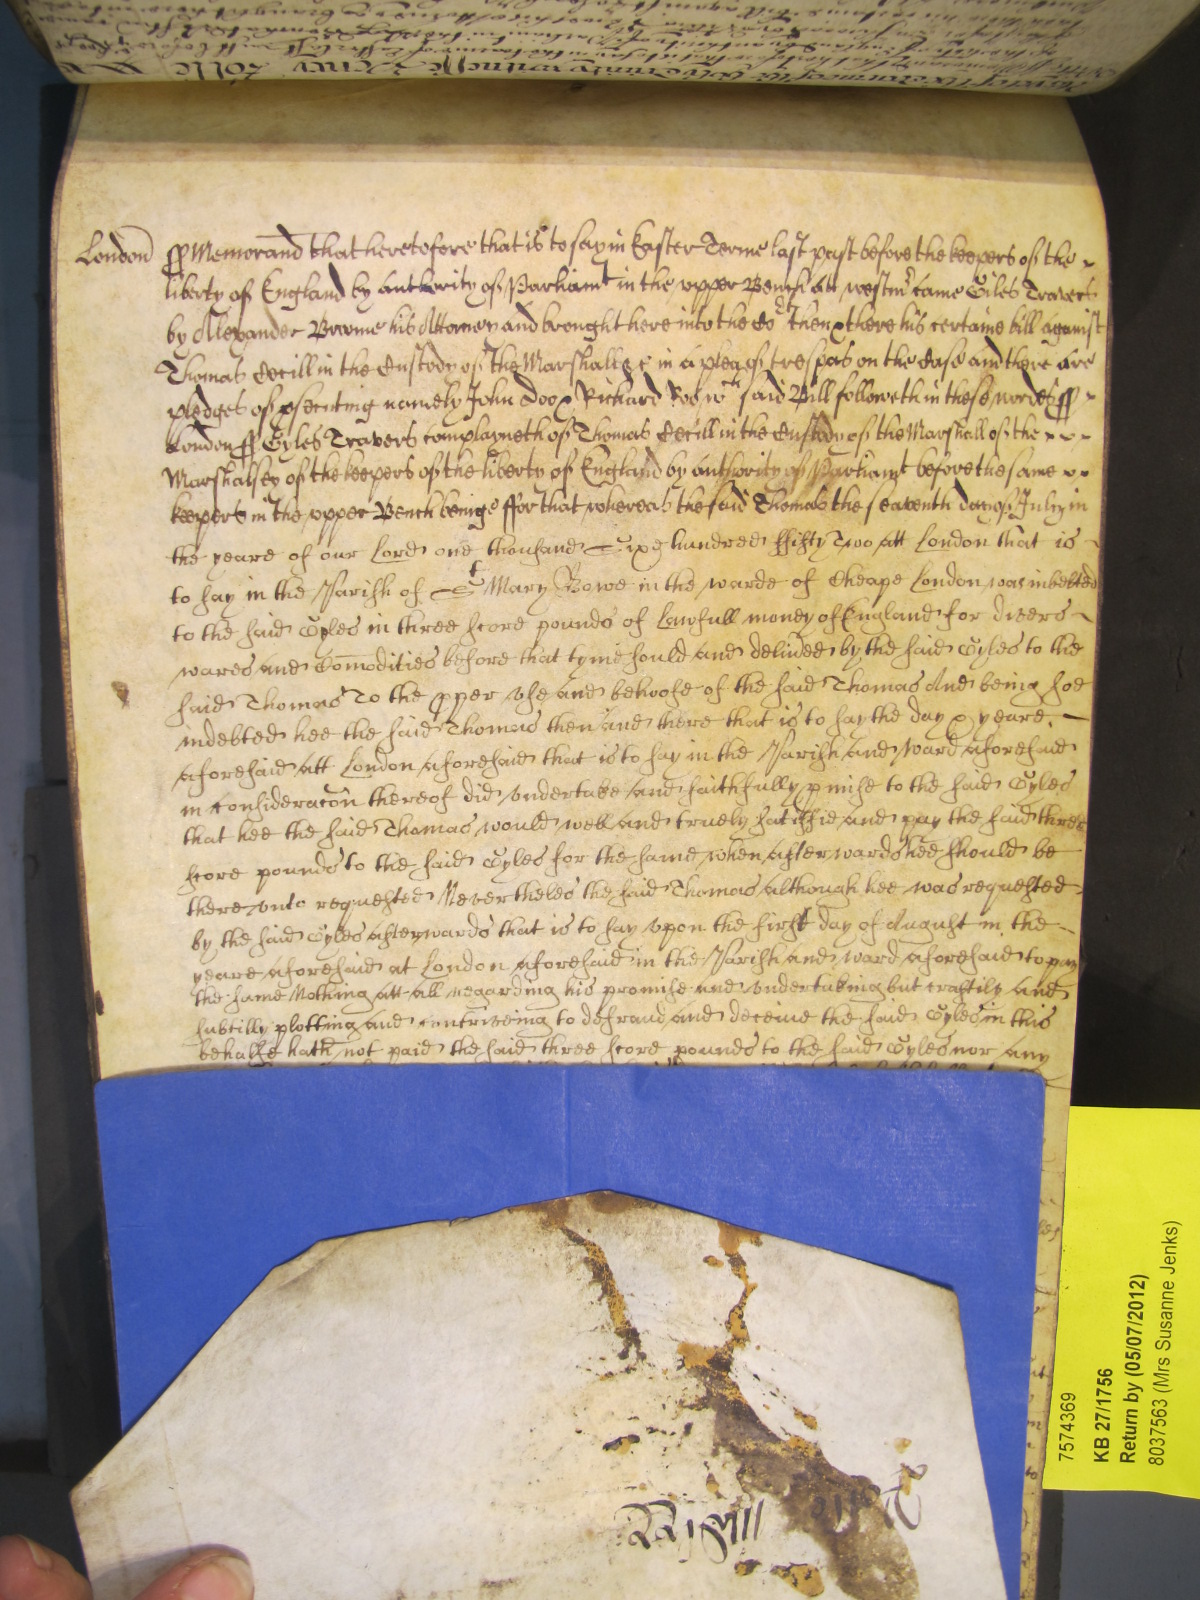 London ss Memorand that heretofore that is to say in Easter Terme last past before the keepers of the
liberty of England by authority of Parliamt in the upper Bench att westmr came Giles Travers
by Allexander Browne his Attorney and brought here into the Cort then & there his certaine bill against
Thomas Cecill in the Custody of the Marshall &c in a plea of trespas on the Case and there are
pledges of psecuting namely John Doo & Richard Roo wch said Bill followeth in these wordes ss
London ss Gyles Travers complayneth of Thomas Cecill in the Custody of the Marshall of the
Marshalsey of the keepers of the liberty of England by authority of Parliamt before the same
keepers in the upper Bench beinge ffor that whereas the said Thomas the seaventh day of July in
the yeare of our Lord one thousand Sixe hundred ffifty Two att London that is
to say in the Parish of St Mary Bowe in the warde of Cheape London was indebted
to the said Gyles in three score pounds of Lawfull money of England for divers
wares and Comodities before that tyme sould and delivred by the said Gyles to the
said Thomas To the pper use and behoofe of the said Thomas And being soe
indebted hee the said Thomas then and there that is to say the day & yeare
aforesaid att London aforesaid that is to say in the Parish and ward aforesaid
in consideracon thereof did undertake and faithfully pmise to the said Gyles
that hee the said Thomas would well and truely satisfie and pay the said three
score pounds to the said Gyles for the same when afterwards hee should be
there unto requested Nevertheles the said Thomas although hee was requested
by the said Gyles afterwards that is to say upon the first day of August in the
yeare aforesaid at London aforesaid in the Parish and ward aforesaid to pay
the same Nothing att all regarding his promise and undertaking but craftily and
subtilly plotting and contriveing to defraud and deceive the said Gyles in this
behalfe hath not paid the said three score pounds to the said Gyles nor any
7574369
KB 27/1756
Return by (05/07/2012)
8037563 (Mrs Susanne Jenks)